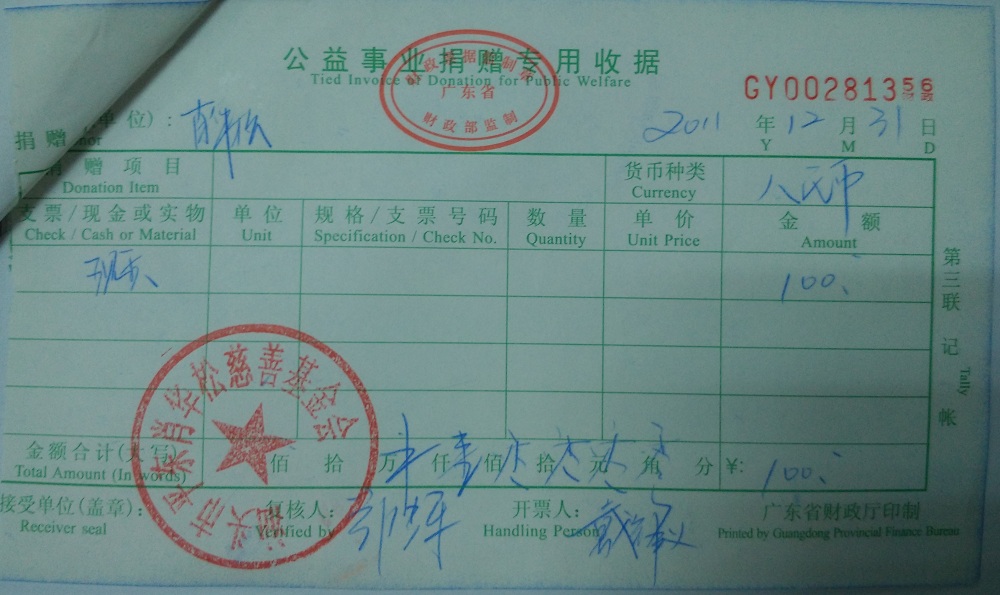 公益事业捐赠专用收据
Tied Invoice of Donation for Public Welfare
广东省
财政部监制
GY00281356
捐赠 单位):
2011 年 12 月 31 日
Y M D
赠项目 货币种类 人民币
Donation Item Currency
支票/现金或实物 单位 规格/支票号码 数量 单价 金额
Check / Cash or Material Unit Specification / Check No. Quantity Unit Price Amount
现金 100.
第三联 记帐
Tally
汕头市平东肖华松慈善基金会
金额合计(大写) 佰 拾 万 仟 壹 佰 拾 元 角 分 ¥: 100.
Total Amount (In words)
接受单位(盖章): 复核人: 开票人: 广东省财政厅印制
Receiver seal Verified by Handling Person Printed by Guangdong Provincial Finance Bureau